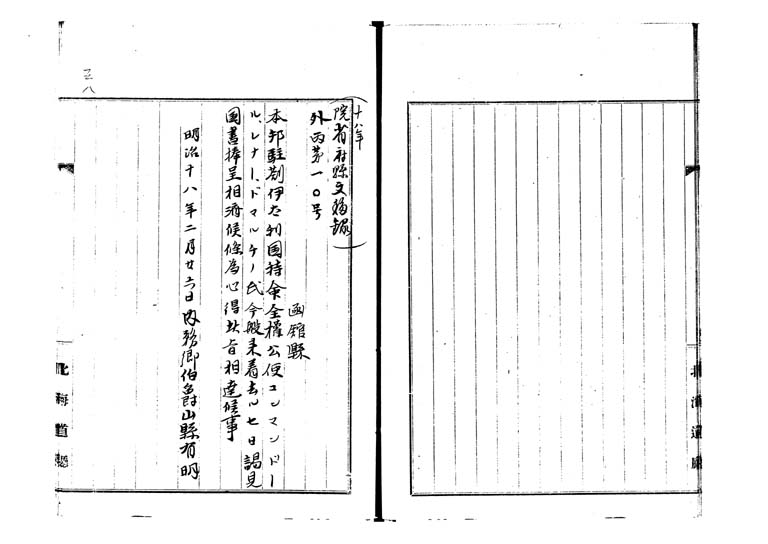 十八年
(院省府縣文移録)
外丙第一〇号
函舘縣
本邦駐剳伊太利国特命全權公使コンマンドー
ルレナードマルチノ氏今般来着去ル七日謁見
国書捧呈相済候條為心得此旨相達候事
明治十八年二月廿六日内務卿伯爵山縣有明
三八
北海道廳
北海道廳